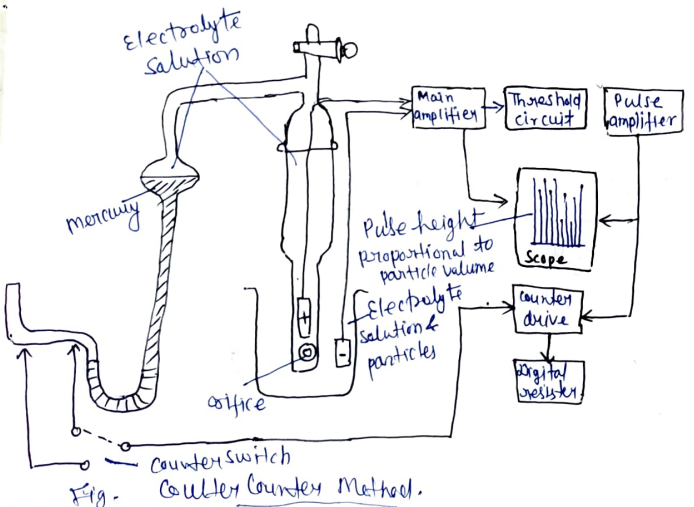 Electrolyte
salution
Main
amplifier
Threshold
circuit
Pulse
amplifier
mercury
Pulse height
proportional to
particle volume
Scope
Electrolyte
solution &
particles
counter
drive
Digital
resister
+
-
orifice
counter switch
Fig. Coulter Counter Method.